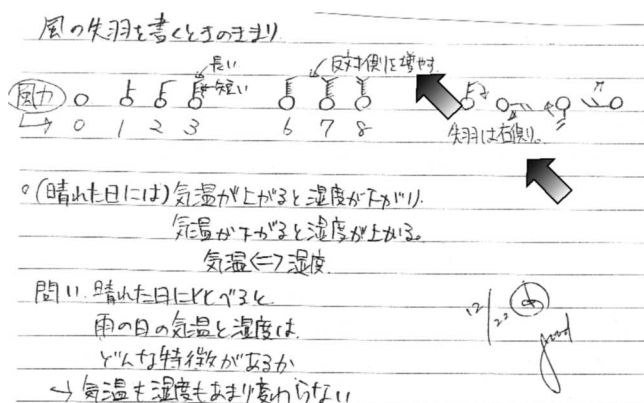 風の矢羽を書くときのきまり
長い
反対側に増やす
風力
短い
0 1 2 3 6 7 8
矢羽は右側り。
(晴れた日には)気温が上がると湿度が下がり、
気温が下がると湿度が上がる。
気温⇔湿度
問い、晴れた日にくらべると、
雨の日の気温と湿度は、
どんな特徴があるか
→ 気温も湿度もあまり変わらない
12/22
good